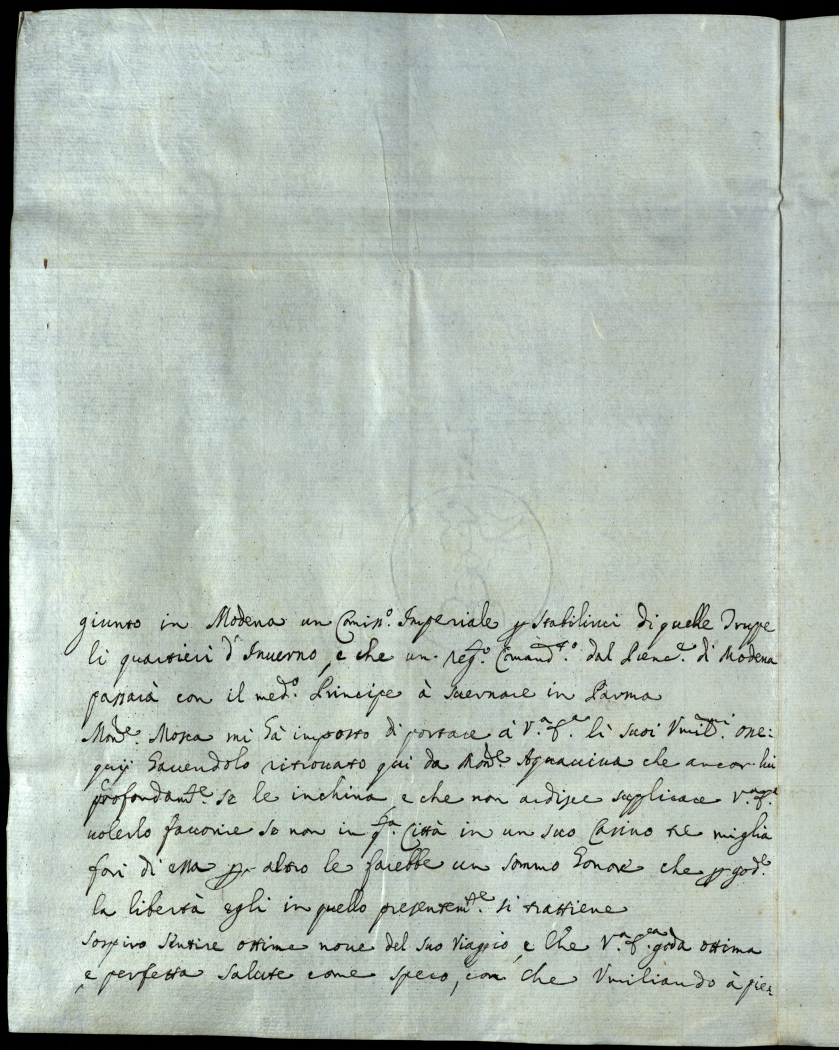 giunto in Modena un Comiss.º Imperiale p Stabilirci di quelle Truppe
li quartieri d'Inuerno, e che un reg.º Comand.to dal Prenc.e di Modena
passarà con il med.º Principe à Suernare in Parma
Mon.re Mosca mi hà imposto di portare à V.a E.a li suoi Vmil.mi osse:
quij hauendolo ritrouato qui da Mon.re Aquauiua che ancor lui
profondam.te se le inchina e che non ardisce supplicare V.a E.a
uolerlo fauorire se non in q.ta Città in un suo Casino tre miglia
fori di essa p altro le sarebbe un sommo honore che p god.e
la libertà egli in quello presentem.te si trattiene
Sospiro sentire ottime noue del suo Viaggio, e che V.a E.a goda ottima
e perfetta salute come spero, con che Vmiliando à pie: